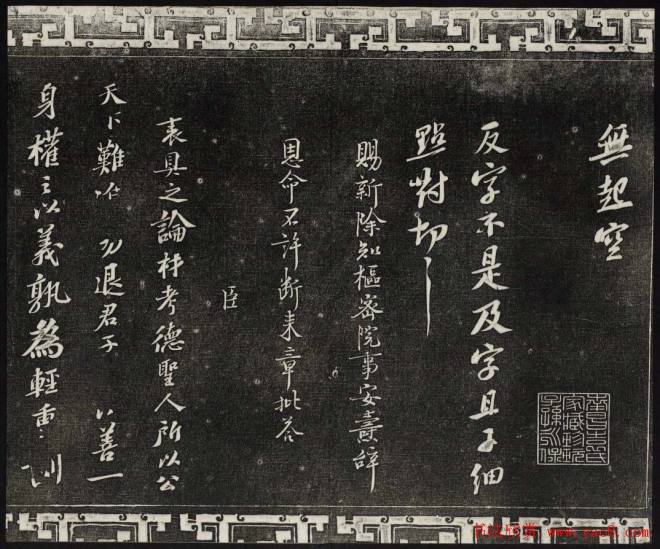 無起空
反字不是及字且子細
點對切〻
賜新除知樞密院事安燾辭
恩命不許斷来章批荅
臣
表具之論材考德聖人所以公
天下難 退君子 善一
身權之以義孰為輕重